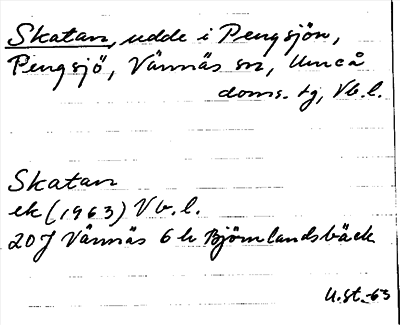 Skatan, udde i Pengsjön,
Pengsjö, Vännäs sn, Umeå
doms. tg, Vb.l.
Skatan
ek (1963) Vb.l.
20J Vännäs 6h Björnlandsbäck
U.st.-63